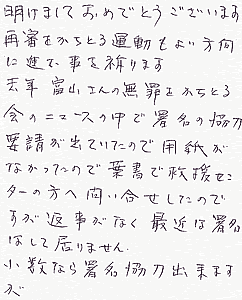 明けましておめでとうございます
再審をかちとる運動もよい方向
に進む事を祈ります
去年 富山さんの無罪をかちとる
会のニュースの中で署名の協力
要請が出ていたので用紙が
なかったので葉書で救援セン
ターの方へ問い合せしたので
すが返事がなく最近は署名
はして居りません.
小数なら署名協力出来ます
が